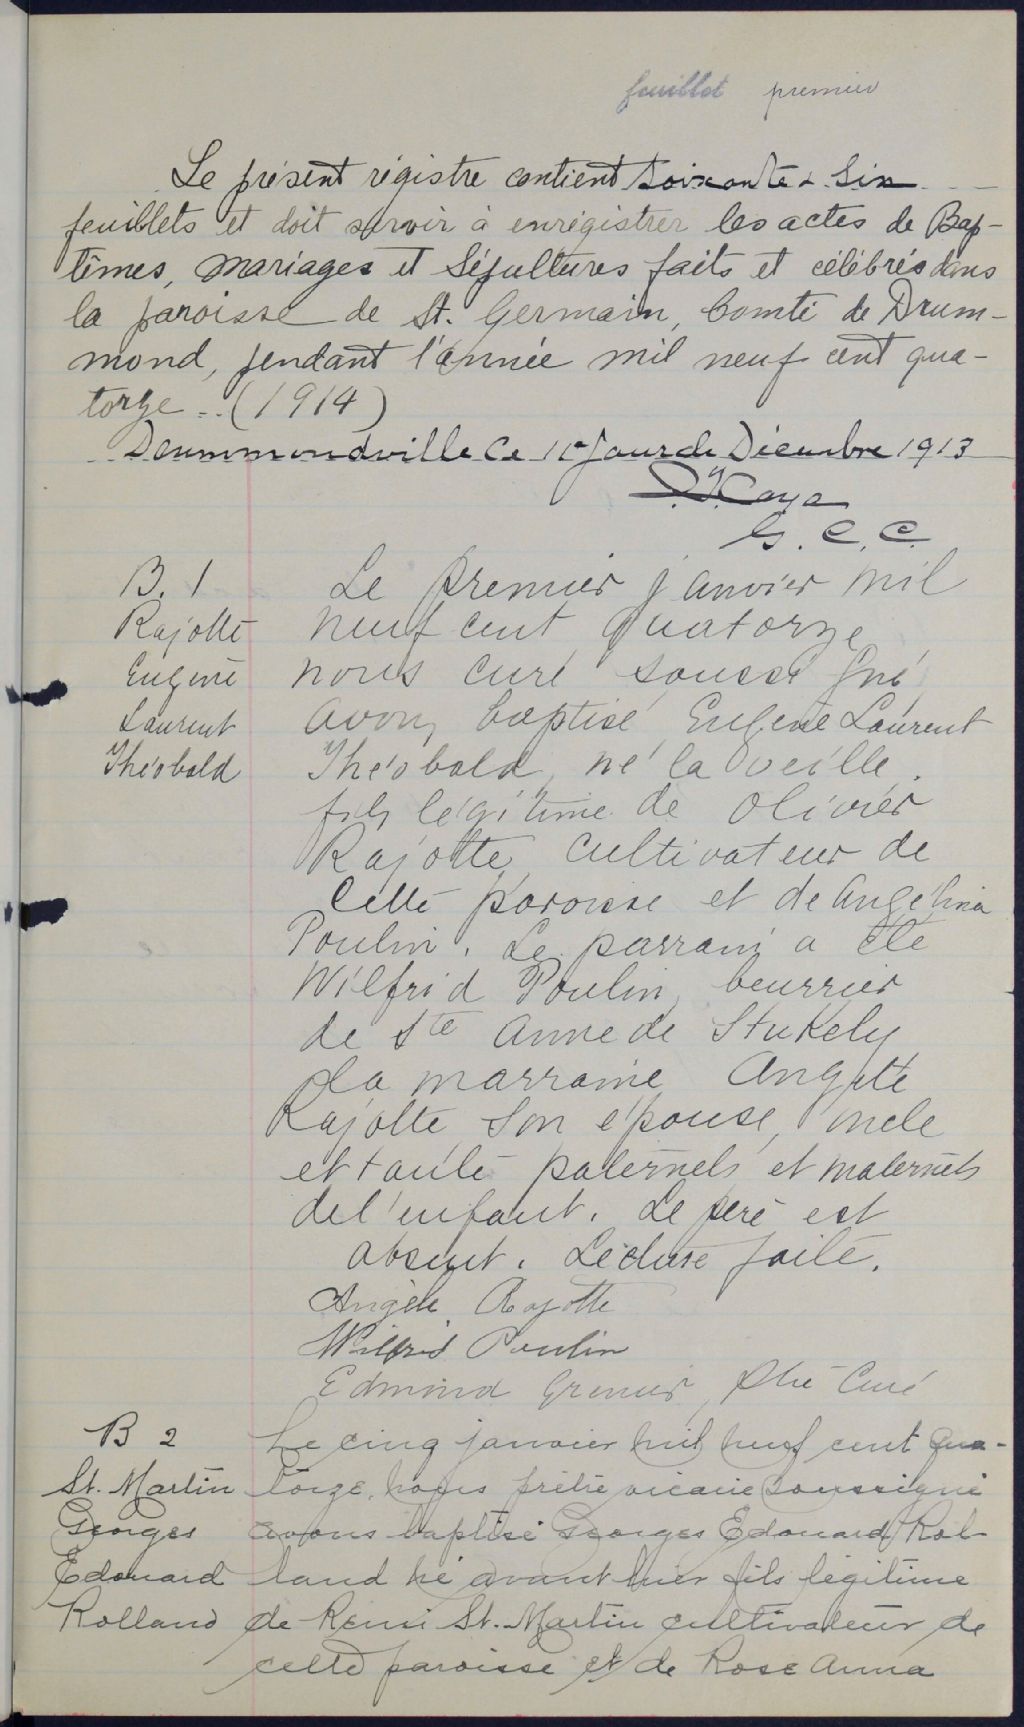 feuillet premier
Le présent régistre contient soixante & six
feuillets et doit servir à enrégistrer les actes de Bap-
têmes, Mariages et Sépultures faits et célébrés dans
la paroisse de St. Germain, Comté de Drum-
mond, pendant l'année mil neuf cent qua-
torze .. (1914)
Drummondville Ce jour de Décembre 1913
G. C. C.
B. 1
Rajotte
Eugene
Laurent
Théobald
Le premier janvier mil
neuf cent quatorze
nous curé soussigné
avons baptisé Eugene Laurent
Théobald, né la veille,
fils légitime de Olivier
Rajotte, cultivateur de
cette paroisse et de Angélina
Poulin. Le parrain a été
Wilfrid Poulin, beurrier
de Ste Anne de Stukely
La marraine Angele
Rajotte, son épouse, oncle
et tante paternels et maternels
de l'enfant. Le pere est
absent. Lecture faite.
Angèle Rajotte
Wilfrid Poulin
Edmond Grenier, Ptre Curé
B 2
St. Martin
Georges
Edouard
Rolland
Le cinq janvier mil neuf cent qua-
torze, nous prêtre vicaire soussigné
avons baptisé Georges Edouard Rol-
land né avant hier fils légitime
de Remi St. Martin cultivateur de
cette paroisse et de Rose Anna